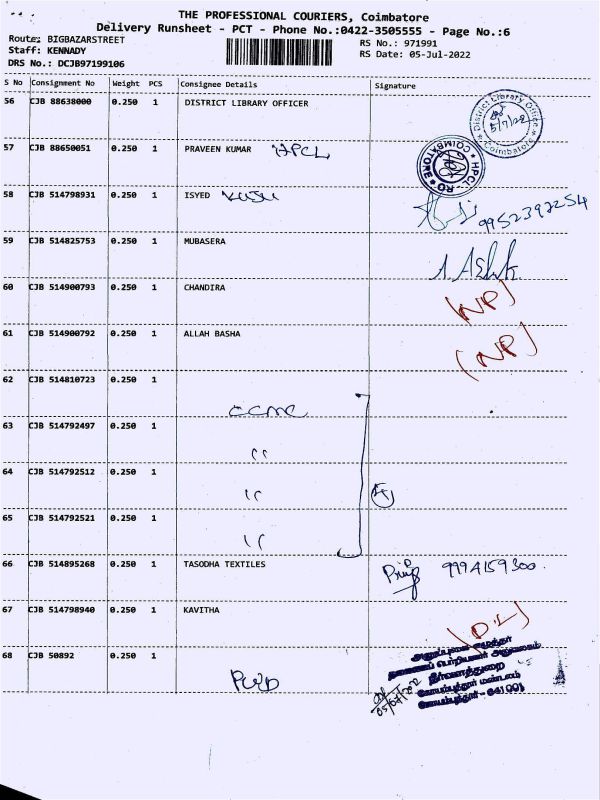 THE PROFESSIONAL COURIERS, Coimbatore
Delivery Runsheet - PCT - Phone No.:0422-3505555 - Page No.:6
Route: BIGBAZARSTREET
RS No.: 971991
Staff: KENNADY
RS Date: 05-Jul-2022
DRS No.: DCJB97199106
S No Consignment No Weight PCS Consignee Details Signature
56 CJB 88638000 0.250 1 DISTRICT LIBRARY OFFICER
District Library Office
5/7/22
Coimbatore
57 CJB 88650051 0.250 1 PRAVEEN KUMAR HPCL
HPCL-RO COIMBATORE
58 CJB 514798931 0.250 1 ISYED
9952392254
59 CJB 514825753 0.250 1 MUBASERA
60 CJB 514900793 0.250 1 CHANDIRA (NP)
61 CJB 514900792 0.250 1 ALLAH BASHA (NP)
62 CJB 514810723 0.250 1 CCMC
63 CJB 514792497 0.250 1 "
64 CJB 514792512 0.250 1 " 4
65 CJB 514792521 0.250 1 "
66 CJB 514895268 0.250 1 TASODHA TEXTILES 9994159300
67 CJB 514798940 0.250 1 KAVITHA (D.L)
68 CJB 50892 0.250 1 PWD
நீர்வளத்துறை
கோயம்புத்தூர் மண்டலம்
கோயம்புத்தூர் - 641001
05/07/2022